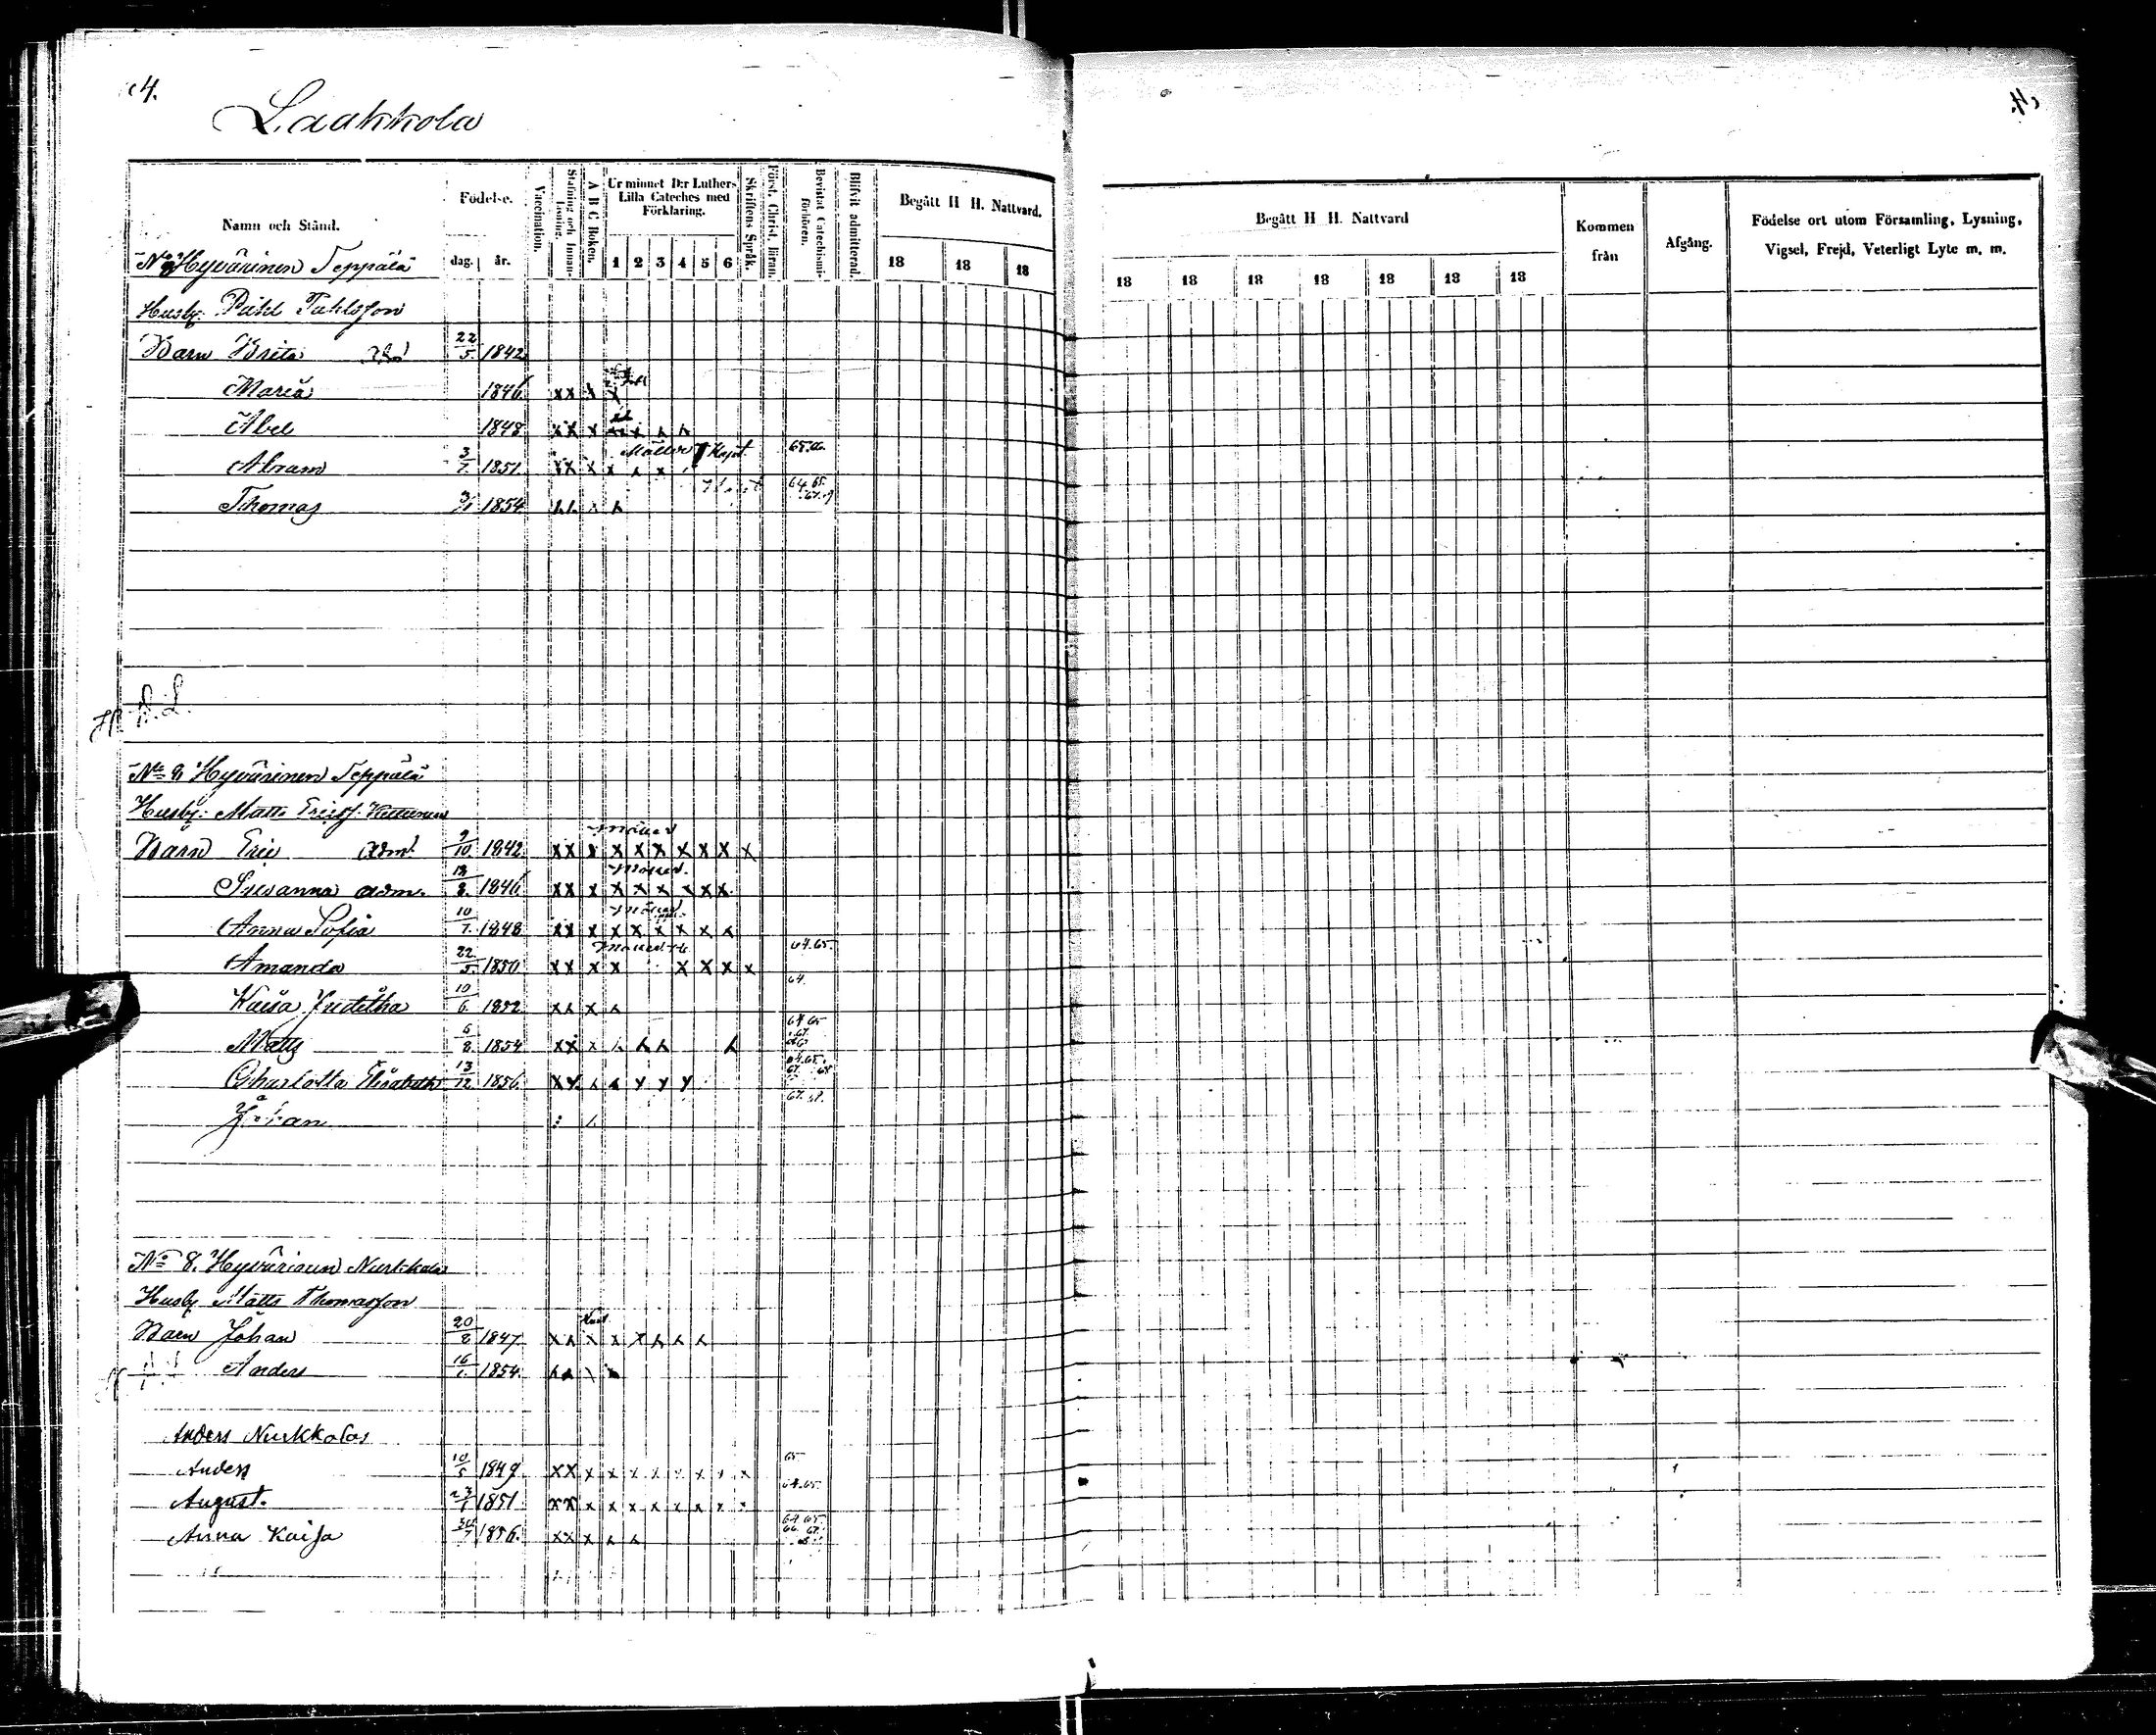 4.
4.
Laakkola
Namn och Stånd.
Födelse.
dag. år.
Vaccination.
Stafning och Innanläsning.
A B C Boken.
Ur minnet D:r Luthers Lilla Cateches med Förklaring.
1 2 3 4 5 6
Skriftens Språk.
Först. Christ. läran.
Bevistat Catechismiförhören.
Blifvit admitterad.
Begått H H. Nattvard.
18 18 18
Begått H H. Nattvard
18 18 18 18 18 18 18
Kommen från
Afgång.
Födelse ort utom Församling, Lysning, Vigsel, Frejd, Veterligt Lyte m. m.
Hyvärinen Seppälä
Husb: Påhl Påhlsson
Barn Brita 22/5 1842
Maria 1846 x x x x
Abel 1848 x x x x x x x
Abram 3/7 1851 x x x x x x
Thomas 1854 x x x x
No 8 Hyvärinen Seppälä
Husb: Matts Ericsf. Hettunen
Barn Eric adm. 9/10 1842 x x x x x x x x x x
Susanna adm. 18/8 1846 x x x x x x x x x
Anna Sofia 10/7 1848 x x x x x x x x x
Amanda 22/5 1850 x x x x x x x x 64.65.
Kaisa Juditha 10/6 1852 x x x x 64.
Matts 6/8 1854 x x x x x x x 64 65
Charlotta Elisabeth 13/12 1856 x x x x x x x 64.65.
Johan 67.68.
No 8. Hyvärinen Nurkkala
Husb Matts Thomasson
Barn Johan 20/8 1847 x x x x x x x x
Anders 1854
Anders Nurkkalas
Anders 1849 x x x x x x x x x x 65
August. 1851 x x x x x x x x x x 64.65.
Anna Kaisa 1856 x x x x x 64 65 66. 67.